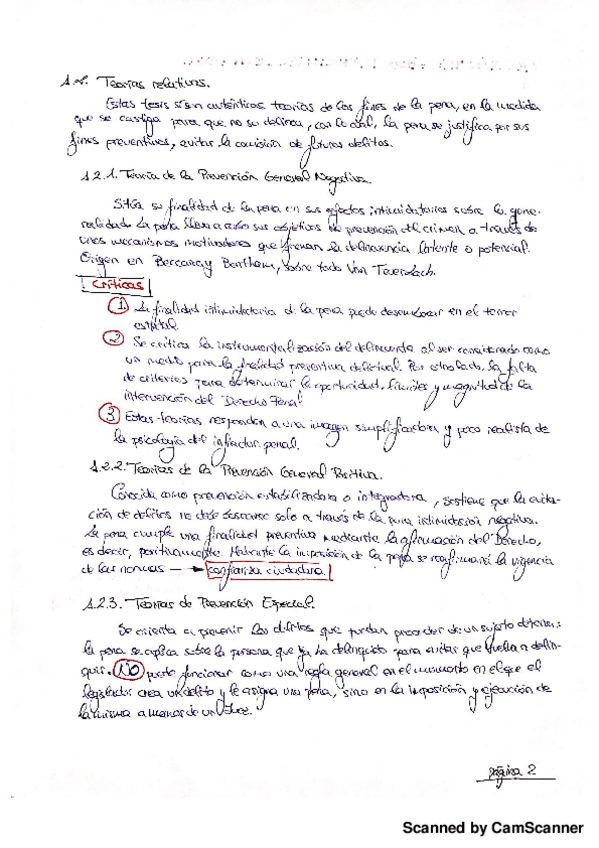 1.2. Teorías relativas.
Estas tesis sí son auténticas teorías de los fines de la pena, en la medida
que se castiga para que no se delinca, con lo cual, la pena se justifica por sus
fines preventivos, evitar la comisión de futuros delitos.
1.2.1. Teoría de la Prevención General Negativa.
Sitúa su finalidad de la pena en sus efectos intimidatorios sobre la gene-
ralidad. La pena lleva a cabo sus objetivos de prevención del crimen a través de
unos mecanismos motivadores que frenan la delincuencia latente o potencial.
Origen en Beccaria y Bentham, sobre todo Von Feuerbach.
Críticas
1 La finalidad intimidatoria de la pena puede desembocar en el terror
estatal.
2 Se critica la instrumentalización del delincuente al ser considerado como
un medio para la finalidad preventiva del actual. Por otro lado, la falta
de criterios para determinar la oportunidad, límites y magnitud de la
intervención del "Derecho Penal".
3 Estas teorías responden a una imagen simplificadora y poco realista de
la psicología del infractor penal.
1.2.2. Teorías de la Prevención General Positiva.
Conocida como prevención estabilizadora o integradora, sostiene que la evita-
ción de delitos no debe buscarse solo a través de la pura intimidación negativa.
La pena cumple una finalidad preventiva mediante la afirmación del Derecho,
es decir, positivamente. Mediante la imposición de la pena se reafirmará la vigencia
de las normas → confianza ciudadana
1.2.3. Teorías de Prevención Especial.
Se orienta a prevenir los delitos que puedan proceder de un sujeto determi:
la pena se aplica sobre la persona que ya ha delinquido para evitar que vuelva a delin-
quir. NO puede funcionar como una regla general en el momento en el que el
legislador crea un delito y le asigna una pena, sino en la imposición y ejecución de
la misma a manos de un Juez.
página 2
Scanned by CamScanner